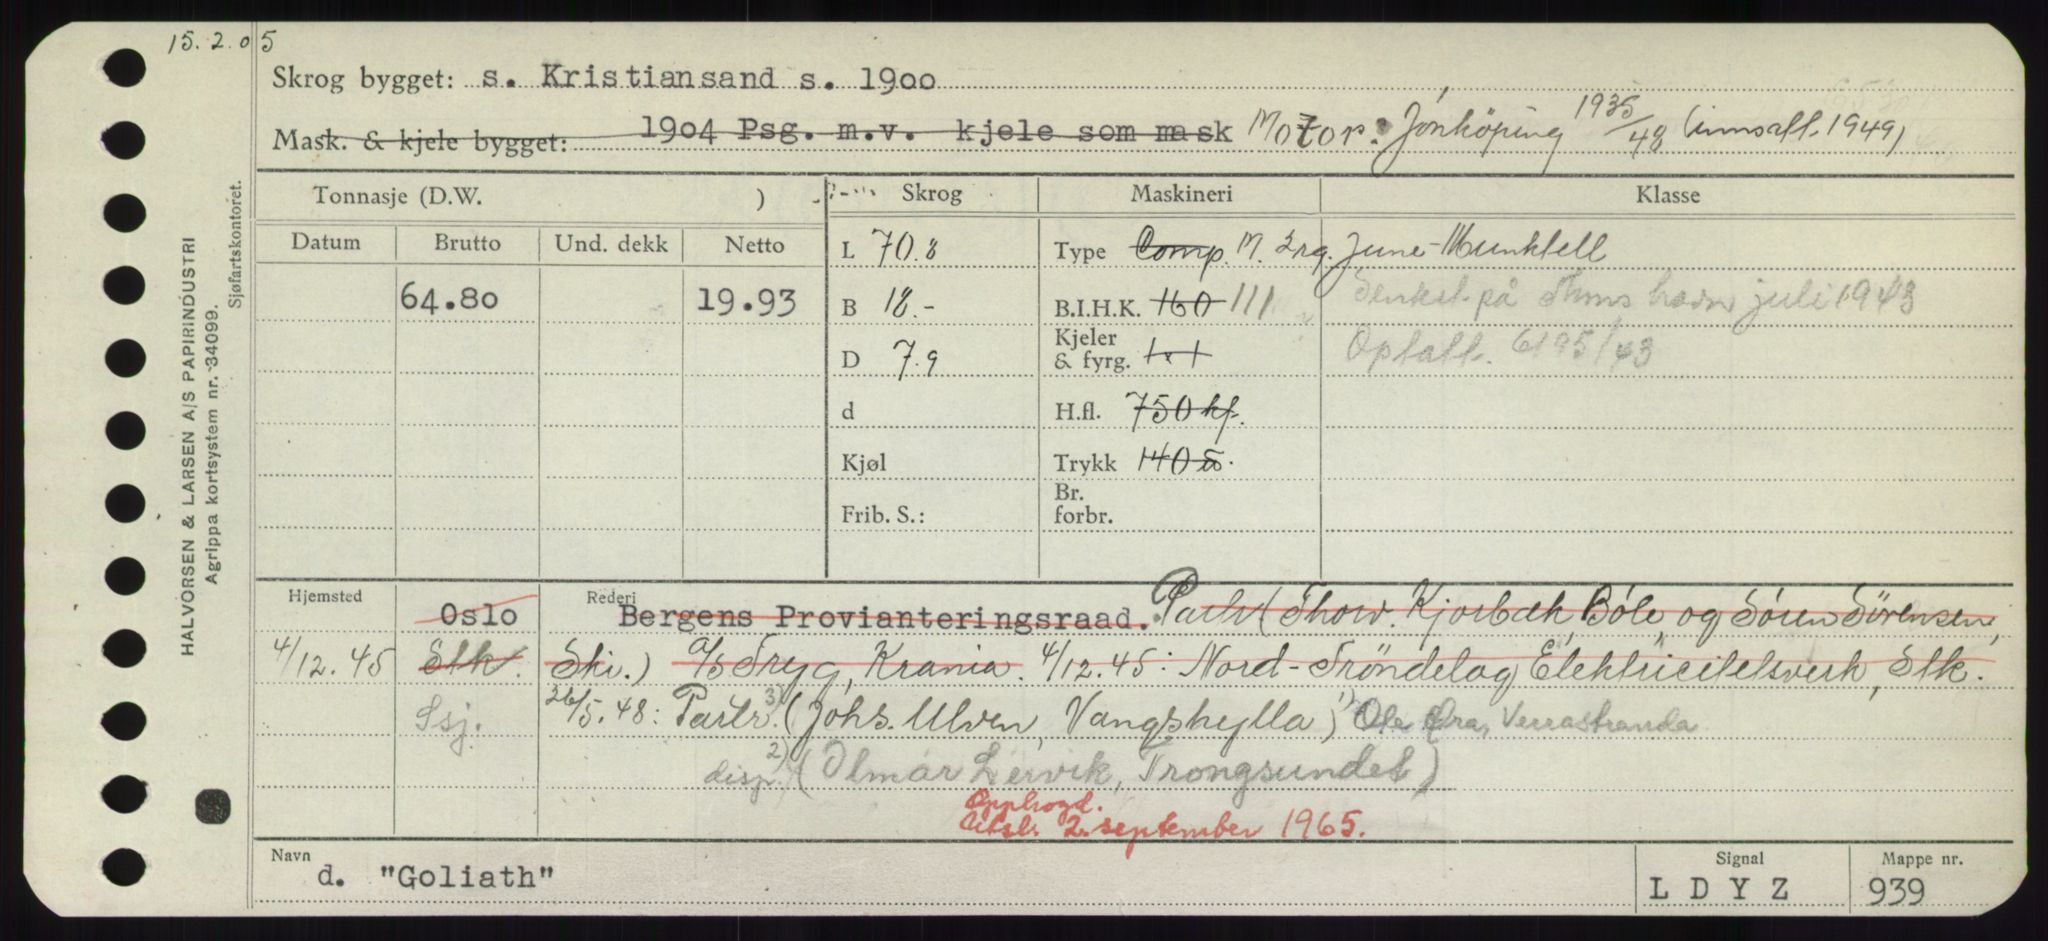 15.2.05
Skrog bygget: s. Kristiansand s. 1900
Mask. & kjele bygget: 1904 Psg. m.v. kjele som mask Motor: Jönköping 1935/48 (innsatt. 1949)
Tonnasje (D.W. ) Skrog Maskineri Klasse
Datum Brutto Und. dekk Netto L 70.8 Type Comp. M. 2rg. June-Munktell
64.80 19.93 B 18.- B.I.H.K. 160 111 Senket på Thms havn juli 1943
D 7.9 Kjeler & fyrg. 1x1 Opptatt. 6/95/43
d H.fl. 750 hf.
Kjøl Trykk 140
Frib. S.: Br. forbr.
Hjemsted Oslo Rederi Bergens Provianteringsraad. Partr (Thorv. Kjorbæk Bøle, og Sören Sörensen,
4/12.45 Stk. Ski.) A/S Tryg, Krania. 4/12.45: Nord-Tröndelag Elektricitetsverk, Stk.
Ssj. 26/5.48: Partr. 3) (Johs. Ulven, Vangshylla) 1) Ole Verrastranda
disp. 2) (Olmar Lervik, Trongsundet)
Opphogd.
Utsl. 2. september 1965.
Navn d. "Goliath" Signal LDYZ Mappe nr. 939
HALVORSEN & LARSEN A/S PAPIRINDUSTRI
Agrippa kortsystem nr. 34099.
Sjøfartskontoret.